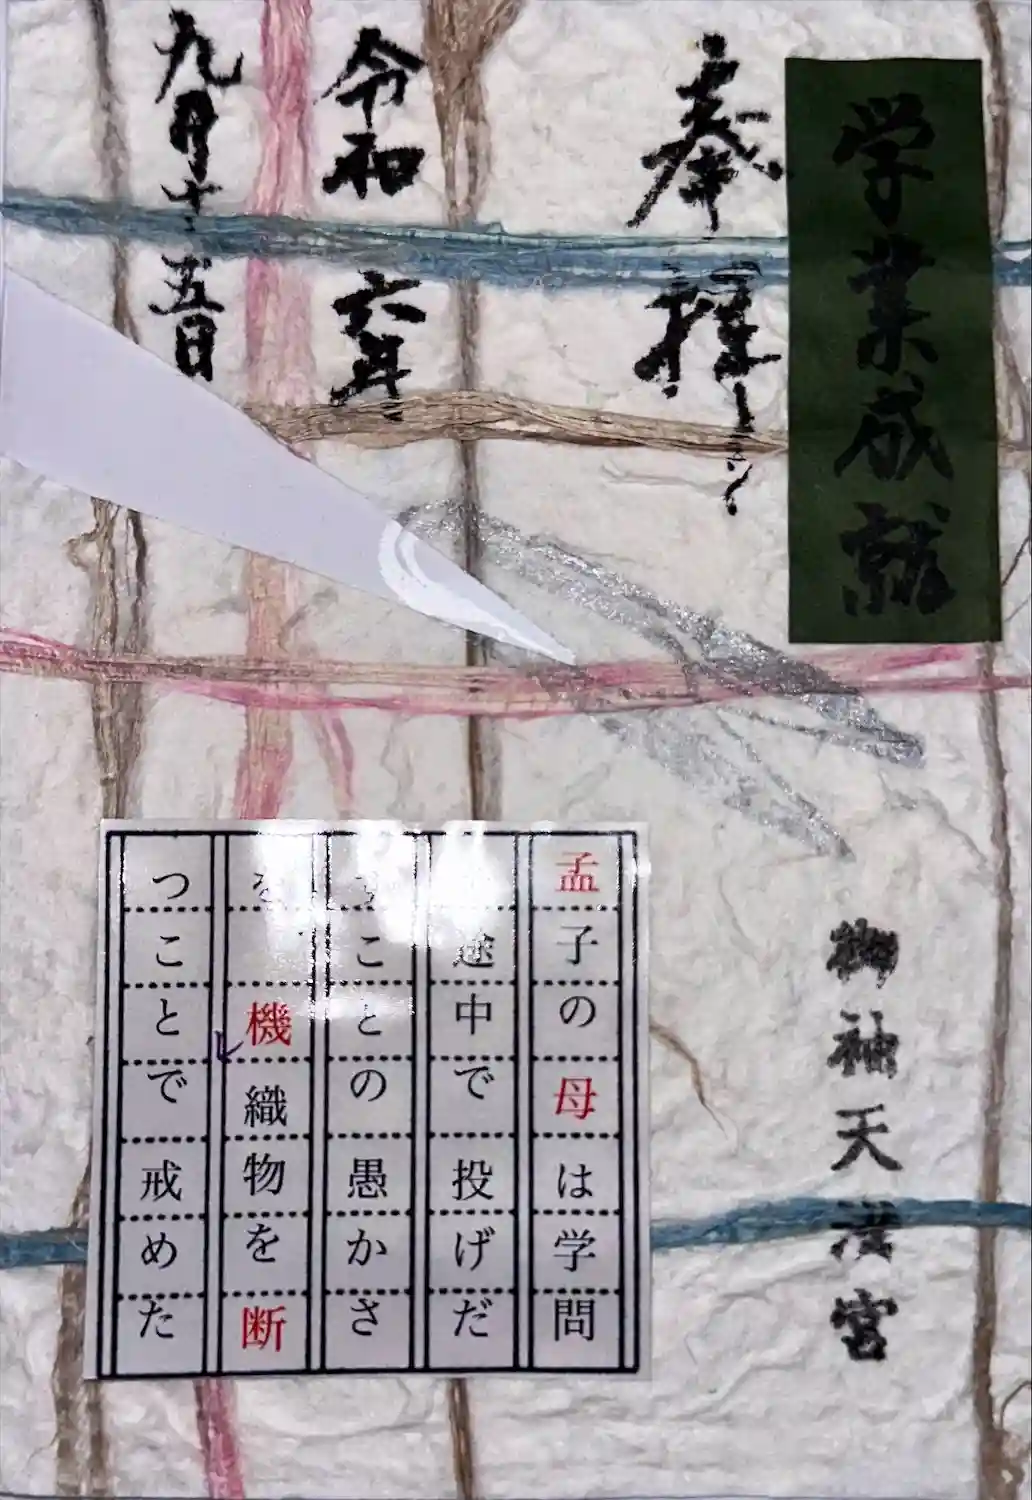 学業成就
奉拝
御袖天満宮
令和六年
九月十五日
孟子の母は学問
途中で投げだ
すことの愚かさ
を 機織物を断
つことで戒めた